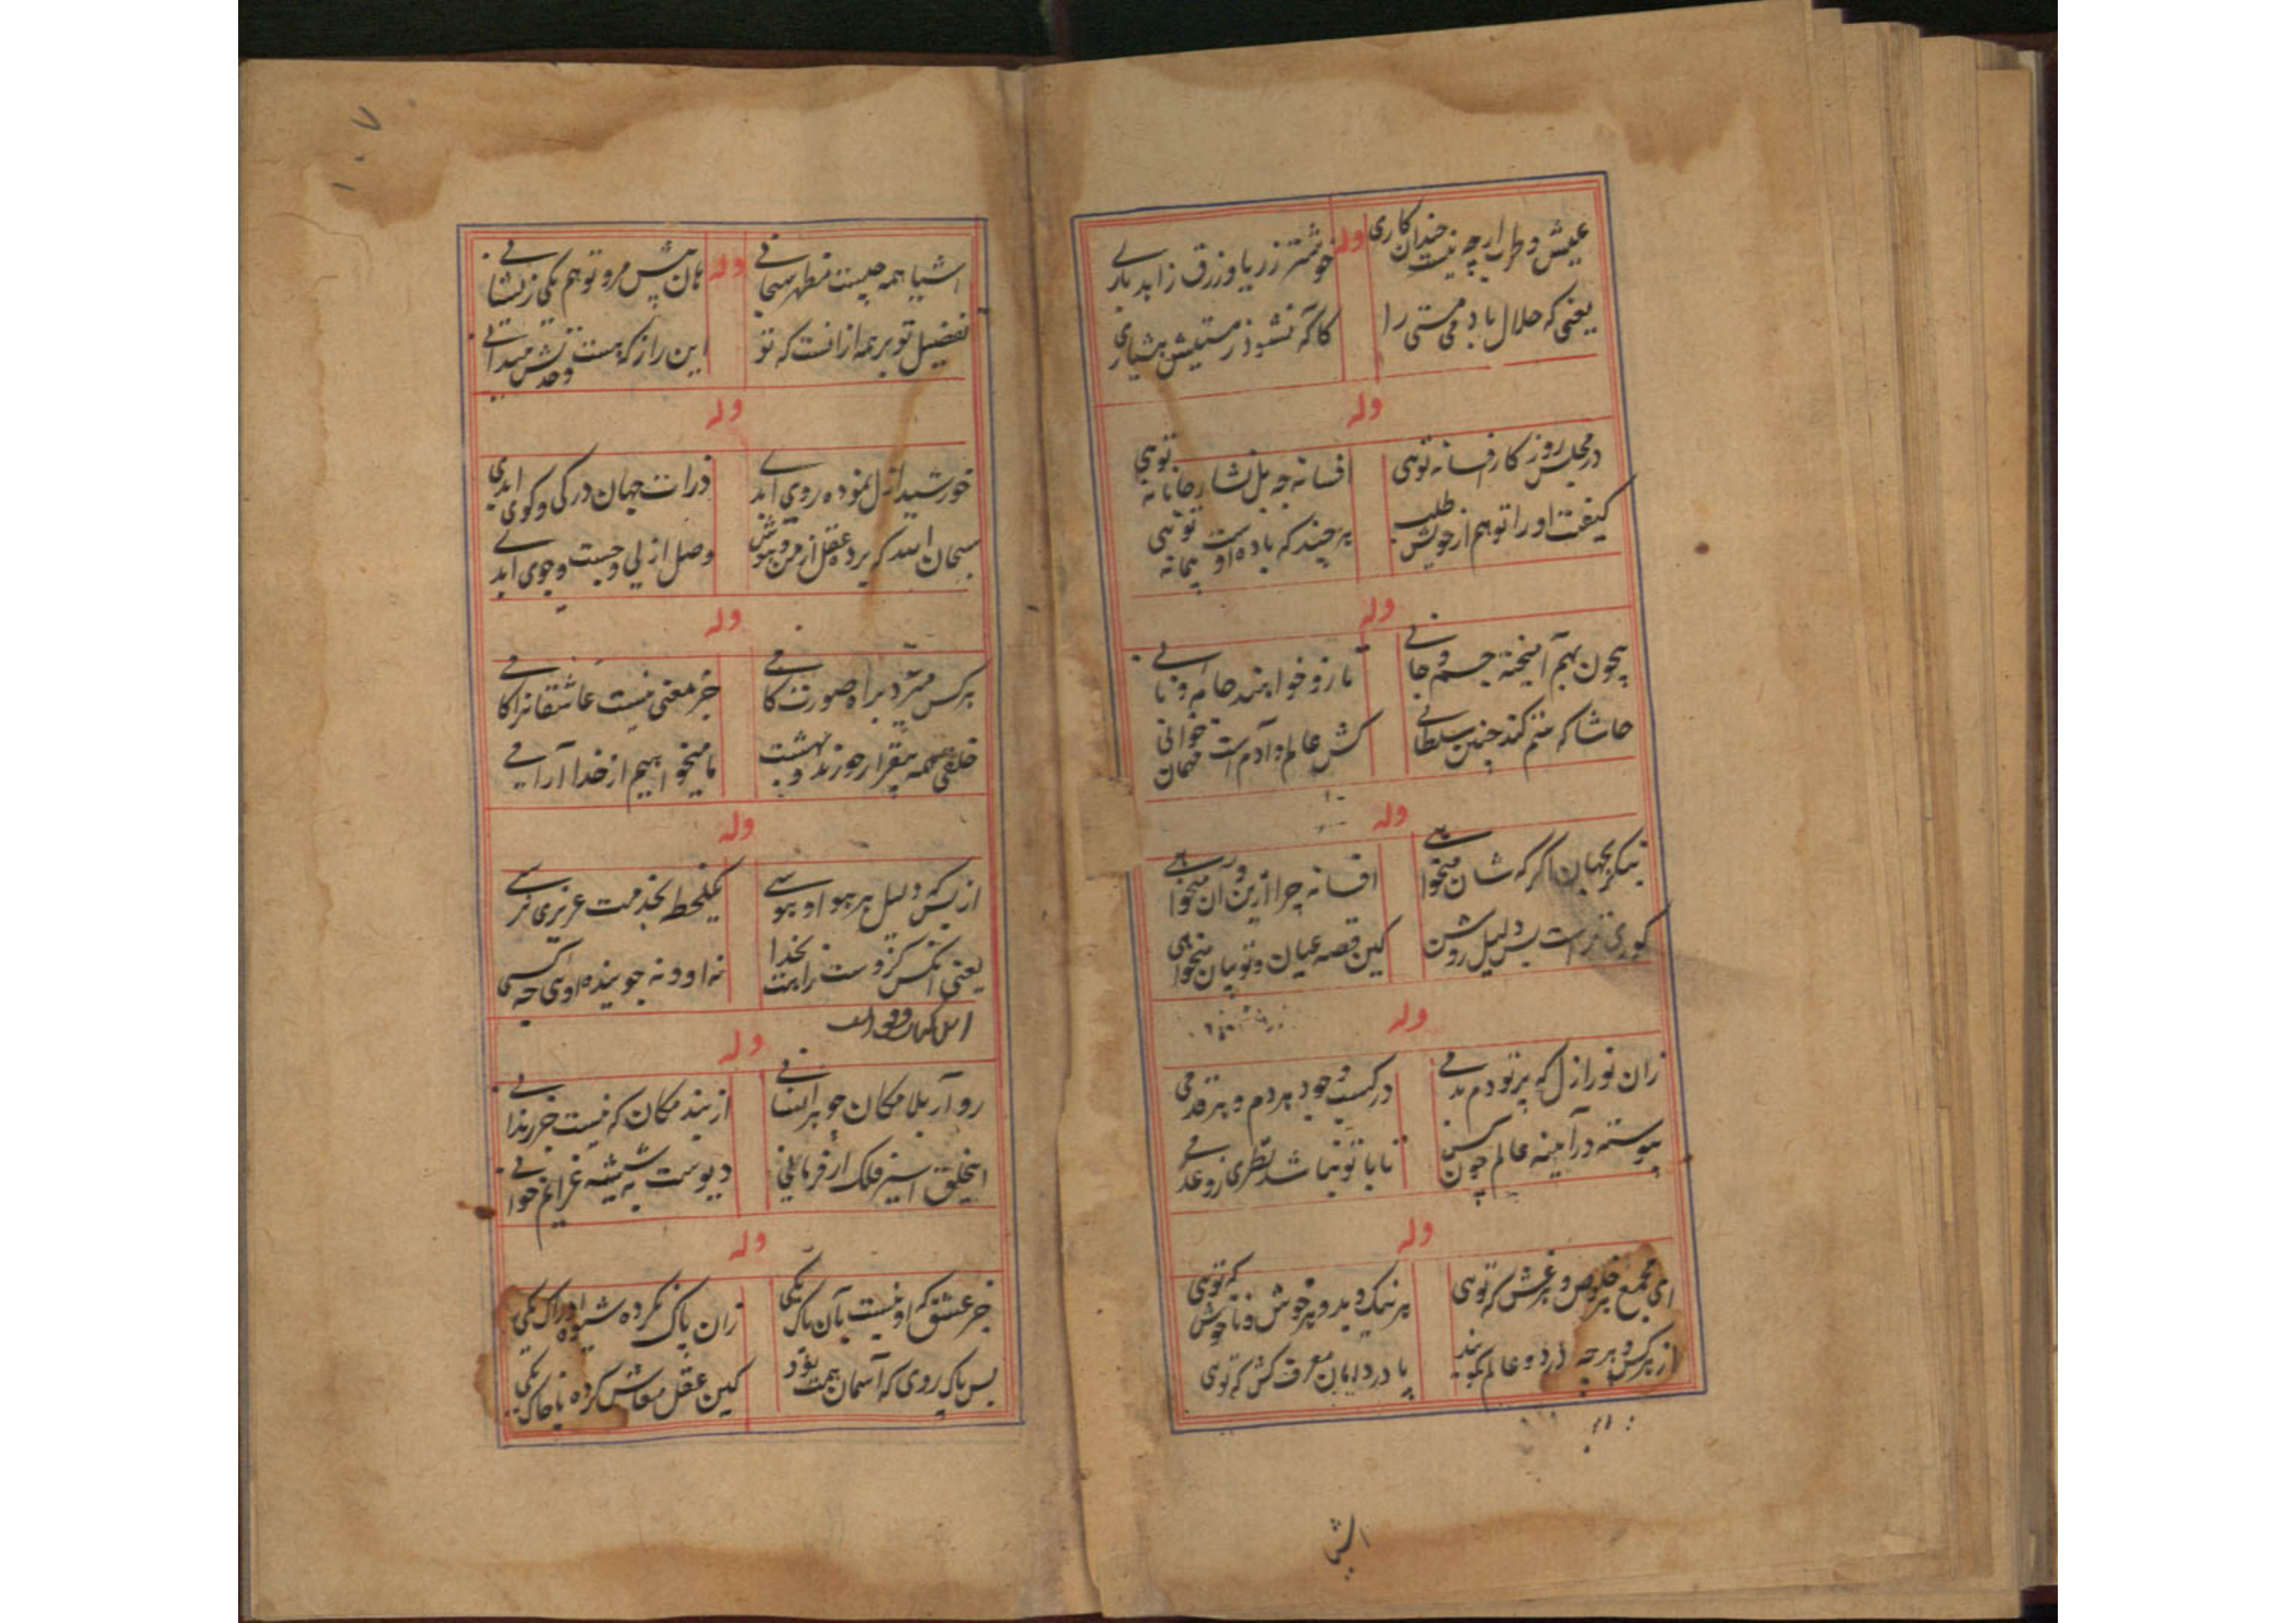 عیش و طرب ارچه نیست چندان کاری
وله
خوشتر ز ریا و زرق زاهد باری
یعنی که حلال باد می مستی را
کاگه نشود ز مستیش هشیاری
وله
در مجلس روزگار افسانه توئی
افسانه چه بل نشاء جانانه توئی
کیفیت او را تو هم از خویش طلب
هر چند که باده اوست پیمانه توئی
وله
بیچون بهم آمیخته جسم و جانی
تا رو خوانند جامه و
حاشا که ستم کند چنین سلطانی
کش عالم و آدم است مهمان خوانی
وله
بنگر بجهان اگر که شان میخواهی
افسانه چرا ازین و آن میخواهی
کوری تراست بس دلیل روشن
کین قصه عیان و تو بیان میخواهی
وله
زان نور ازل که پرتو دم
در کسب وجود هر دم و هر قدمی
پیوسته در آمینه عالم چون
تا با تو نباشد نظری زو عدمی
وله
ای مجمع هر خلوص و هر غش که توئی
هر نیک و بد و هر خوش و ناخوش که توئی
از هر کس و هر چه در دو عالم گویند
یا درد ایان معرفت کش که توئی
اشیا
۱۰۷
اشیا همه چیست مظهر سبحانی
وله
هان پیش مرو تو هم یکی زیشانی
تفضیل تو بر همه از آنست که تو
این راز که هست وحدتش میدانی
وله
خورشید ازل نموده روی ابدی
ذرات جهان در تکی و کوی ابدی
سبحان الله که برده عقل از من و هوش
وصل ازلی و جست و جوی ابدی
وله
هر کس میرد براه صورت کامی
جز معنی نیست عاشقانرا کامی
خلقی همه بیقرار حورند و بهشت
ما میخواهیم از خدا آرامی
وله
از بسکه دلیل هر هوا و هوسی
یکلحظه بخدمت عزیزی نرسی
یعنی آنکس کزوست راهت بخدا
نه او و نه جوینده اوی چه کسی
وله
رو آر بلامکان چو هر انسانی
از بند مکان که نیست جز زندانی
اینخلق اسیر فلک ار فرمائی
دیوست به شیشه عزایم خوانی
وله
جز عشق که او نیست بآن پاک یکی
زان پاک نکرده شیوه ادراک یکی
بس پاک روی که آسمان همت بود
کین عقل معاش کرده با خاک یکی